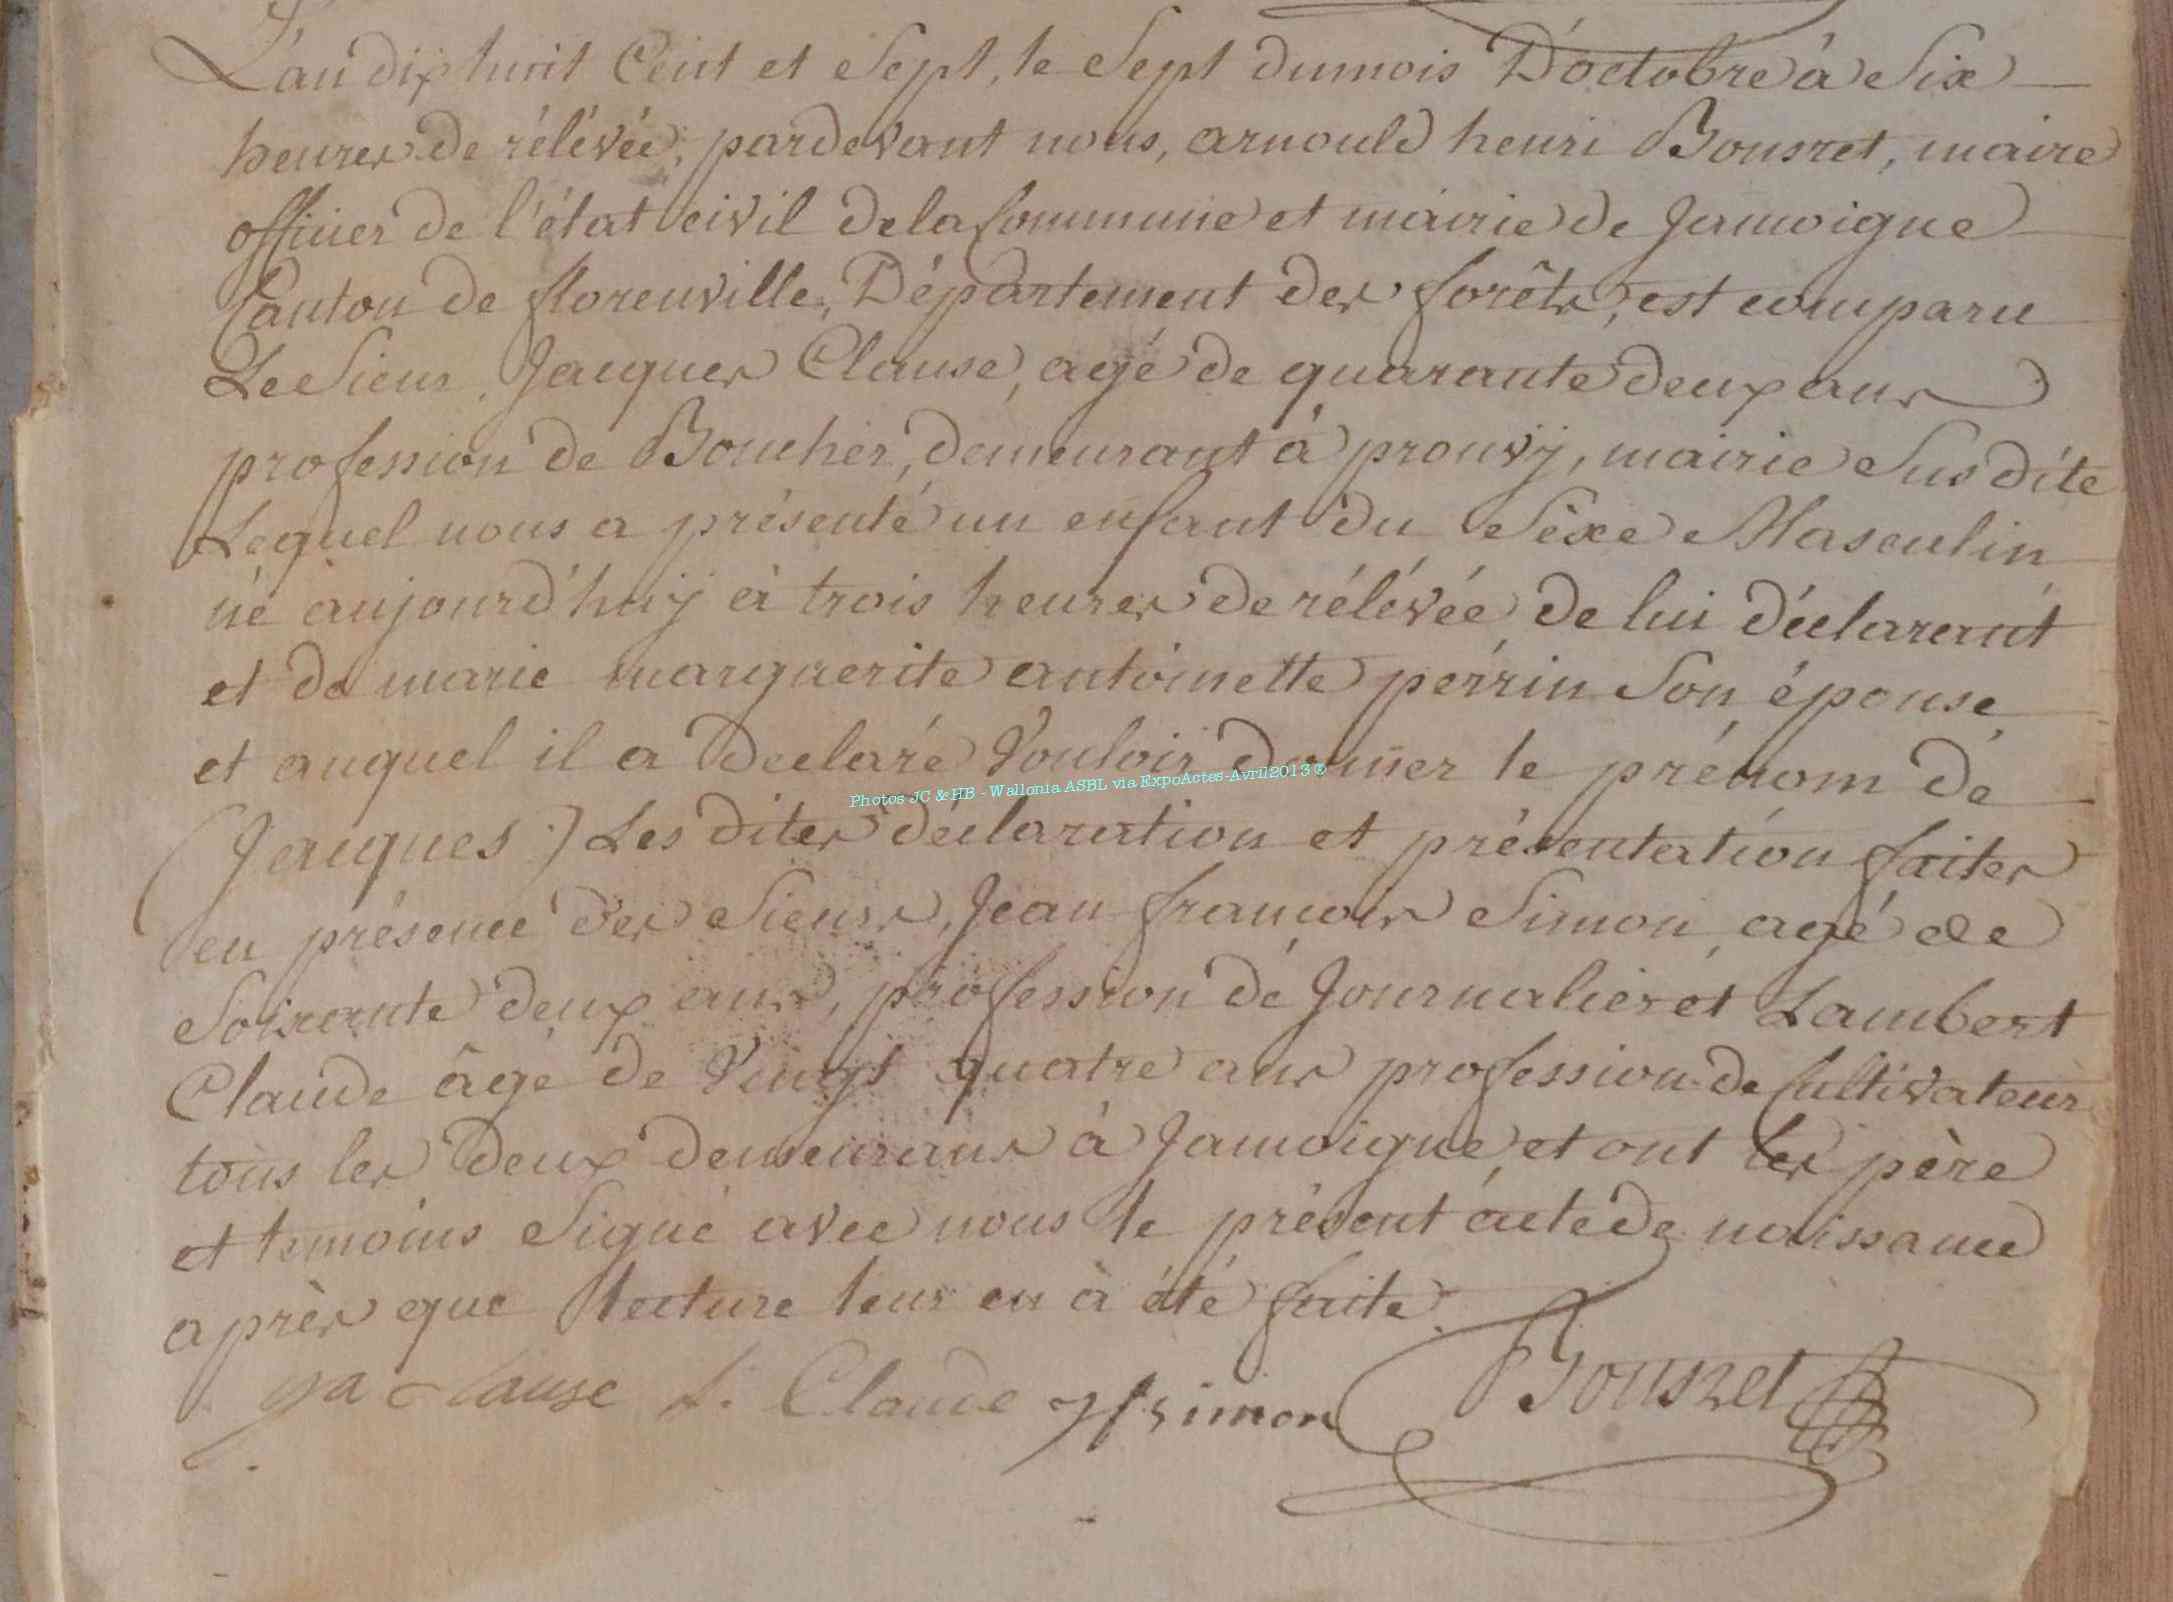 L'an dix huit Cent et Sept, le Sept du mois D'octobre à Six
heures de rélévée, pardevant nous, arnould henri Bousret, maire
officier de l'état civil de la Commune et mairie de Jamoigne
Canton de florenville, Département des forêts, est comparu
Le Sieur Jacques Clause, agé de quarante deux ans
profession de Boucher, demeurant à prouvÿ, mairie Susdite
Lequel nous a présenté un enfant du Séxe Masculin
né aujourd'huÿ à trois heures de rélévée de lui déclarant
et de marie marguerite antoinette perrin Son épouse
et auquel il a declaré Vouloir donner le prénom de
(Jacques) Les dites déclaration et présentation faites
en présence des Sieurs, Jean françois Simon, agé de
Soixante deux ans, profession de Journalier et Lambert
Claude âgé de Vingt quatre ans profession de Cultivateur
tous les deux demeurans à Jamoigne, et ont les père
et temoins Signé avec nous le présent acte de naissance
après que lecture leur en à été faite.
Clause L. Claude jfsimon Bousret
Photos JC & HB - Wallonia ASBL via ExpoActes-Avril2013®